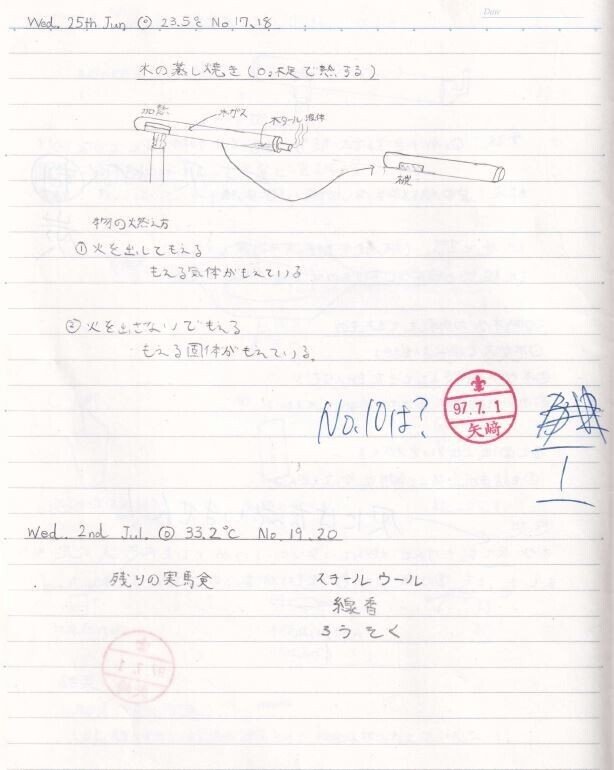 Date
Wed. 25th Jun ◎ 23.5℃ No.17、18
木の蒸し焼き(O₂不足で熱する)
加熱
木ガス
木タール 液体
木炭
物の燃え方
①火を出してもえる
もえる気体がもえている
②火を出さないでもえる
もえる固体がもえている。
No.10は?
97.7.1
矢崎
1
Wed. 2nd Jul. ◎ 33.2℃ No.19、20
残りの実験
スチールウール
線香
ろうそく